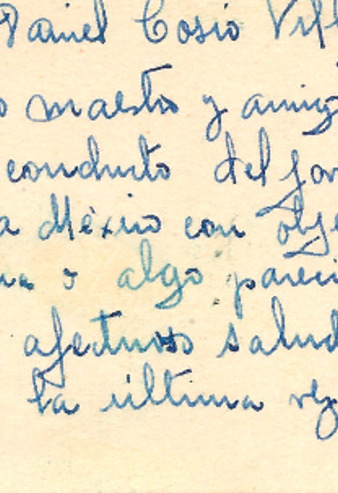 Daniel Cosio Vill
o maestro y amig
conducto del jov
a México con obje
na o algo pareci
afectuoso salud
la última vez